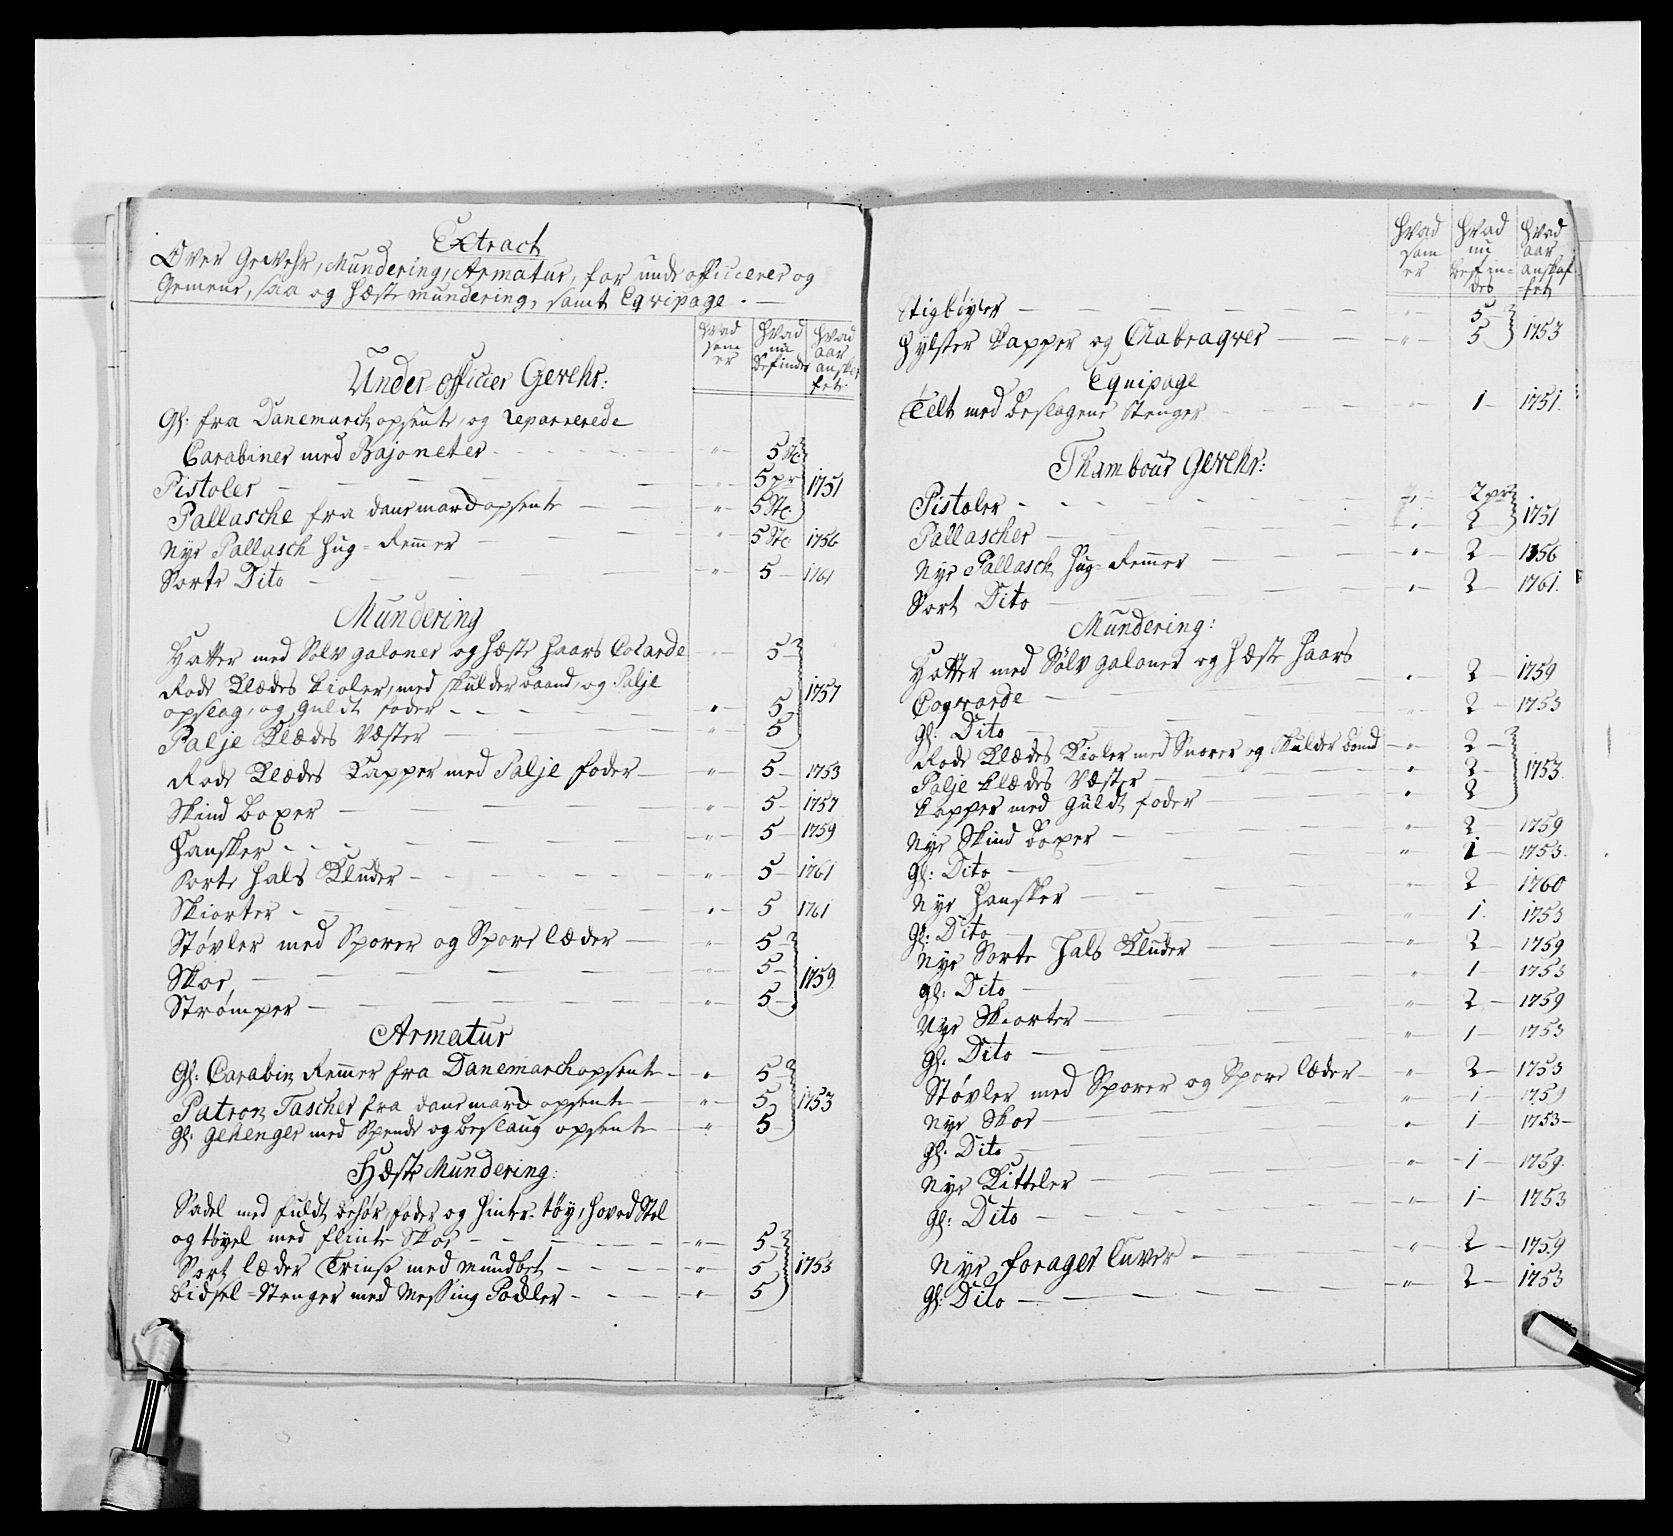 Extract
Over Gevehr, Mundering, Armatur, for under officierer og
Gemene, saa og Hæste mundering, samt Eqvipage. —
Hvad som er | Hvad nu befindes | Hvad aar anskaffet
Under-officier Gevehr:
Gl: fra Danemarck opsente, og reparerede
Carabiner med Bajoneter - - - " - 5 Stc
Pistoler — — " - 5 pr 1751
Pallasche fra danemarck opsente — — " - 5 Stc
Nye Pallasch Hug-Remmer — — " - 5 Stc 1756
Sorte Dito — — " - 5 - 1761
Mundering
Hatter med Sølv galoner og Hæste Haars Cocarde - " - 5 -
Røde Klædes Kioler, med skulder baand, og Palje
opslag, og Guldt foder - - - " - 5 1757
Palje Klædes Væster — — " - 5
Røde Klædes Kapper med Palje foder — " - 5 - 1753
Skind boxer — — " - 5 - 1757
Hansker - - - — " - 5 - 1759
Sorte Hals Kluder - - - " - 5 - 1761
Skiorter - — — " - 5 1761
Støvler med Sporer og Spore læder — " - 5 -
Skoe, — — " - 5 - 1759
Strømper — — " - 5 -
Armatur
Gl: Carabin Remmer fra Danemarch opsente — " - 5
Patron Tascher fra danemarck opsente — " - 5 1753
Gl: Gehenger med Spende og beslaug opsente — " - 5
Hæste Mundering:
Sadel med fuldt behør, foder og Hinter-tøy, Hoved Stol
og tøyel med flinte Skoe - - — " - 5
Sort læder Trinse med mundbet - - - " - 5 1753
Bidsel-Stenger med Messing Podler - - - " - 5
Hvad som er | Hvad nu befindes | Hvad aar anskaffet
Stigbøyler — — " - 5 -
Hylster Kapper og Chabraqver — — " - 5 1753
Equipage
Telt med beslagene Stenger - - " 1 - 1751.
Thambour Gevehr:
Pistoler - - - " - 2 pr
Pallascher — — " - 2 1751
Nye Pallasch Hug-Remmer — — " - 2 - 1756
Sort Dito — — " - 2 - 1761.
Mundering:
Hatter med Sølv galoner og Hæste Haars
Coqvarde — — " - 2 - 1759
Gl: Dito — — " - 2 - 1753
Røde Klædes Kioler med Snorer og Skulder bond — " - 2 -
Palje Klædes Væster — — " 2 - 1753.
Kapper med Guldt foder — — " 2
Nye Skind boxer — — " 2 - 1759
Gl: Dito — — " 1 - 1753.
Nye Hansker — — " - 2 - 1760
Gl: Dito — — " 1. 1753
Nye Sorte Hals Kluder — — " - 2 - 1759
Gl: Dito — — " 1 - 1753
Nye Skiorter — — " - 2 - 1759
Gl: Dito — — " 1 - 1753
Støvler med Sporer og Spore læder — " - 2 - 1753
Nye Skoe — — " - 1 - 1759
Gl: Dito — — " 1 - 1753 -
Nye Kitteler — — " - 1 - 1759.
Gl: Dito — — " - 1 - 1753
Nye forager luver — — " - 2 - 1759
Gl: Dito — — " - 2 - 1753